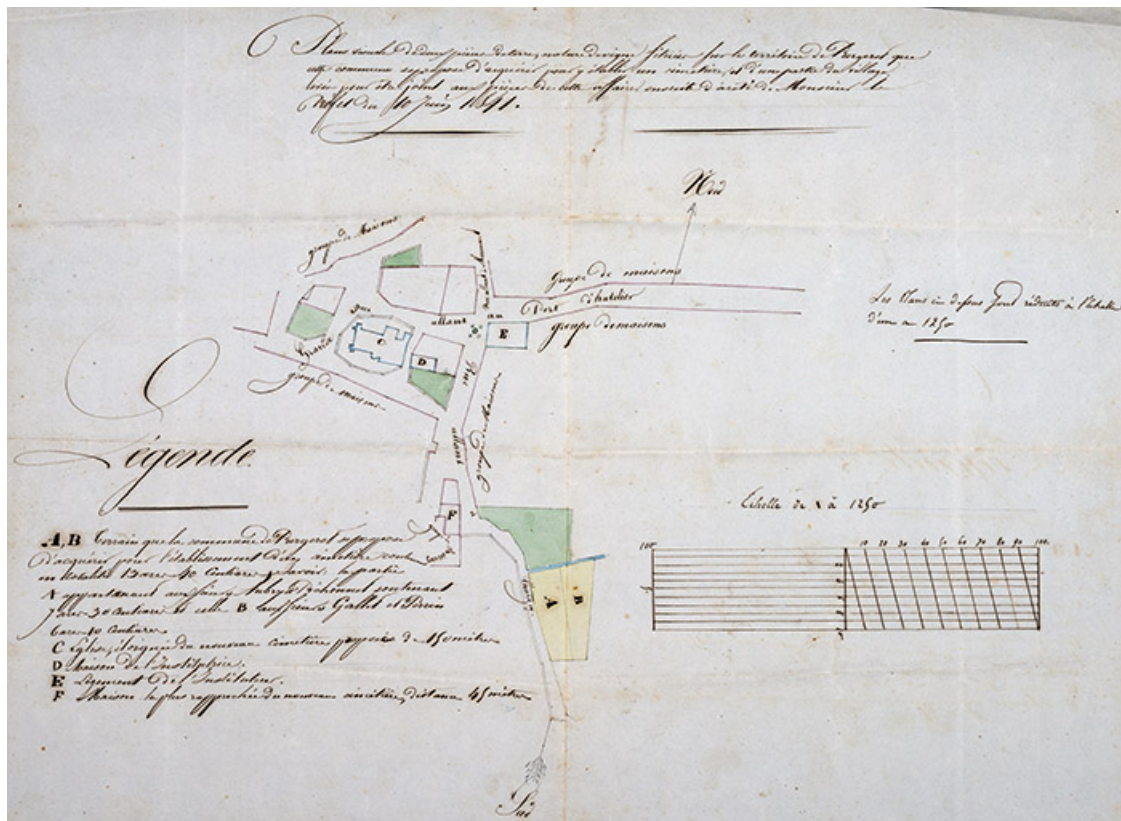 Plan visuel de deux pièces de terre, nature de vigne situées sur le territoire de Bergeres que
cette commune se propose d'acquérir pour y établir un cimetière, et d'une partie du village
levée pour être joint aux pièces de cette affaire ensuite d'arrêté de Monsieur le
Préfet du 10 Juin 1841.
Nord
groupe de Maisons
Groupe de maisons
rue
allant
au
Port
à Chatelier
groupe de maisons
E
C
D
Grande
groupe de maisons
Rue
allant
groupe de Maisons
F
A
B
Sud
Les Plans ci dessous sont réduits à l'échelle
d'un a 1250
Légende
A, B Terrain que la commune de Bergeres se propose
d'acquérir pour l'établissement d'un cimetière
en totalité 13 ares 40 Centiares savoir: la partie
A appartenant aux sieurs contenant
7 ares 30 Centiares et celle B aux sieurs Gallet et Perrin
6 ares 10 Centiares
C Eglise, éloignée du nouveau cimetière proposé de 150 mètres
D Maison de l'Institutrice.
E Logement de l'Instituteur.
F Maison la plus rapprochée du nouveau cimetière, distance 45 mètres
Echelle de 1 à 1250
100 10 20 30 40 50 60 70 80 90 100